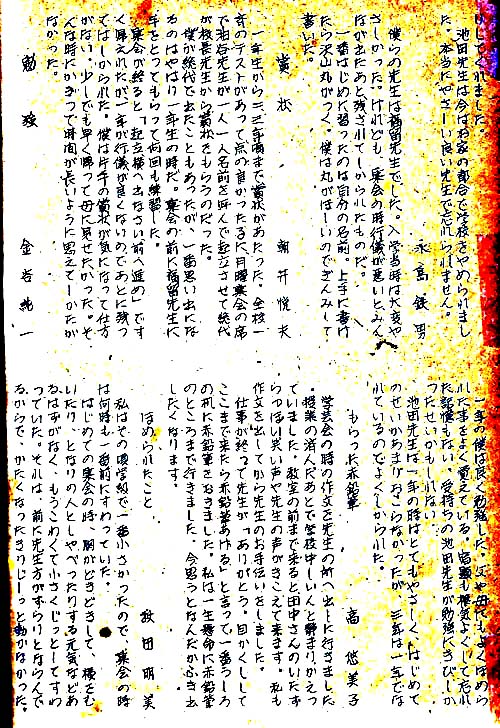 りしてくれました。
池田先生は今はお家の都合で学校をやめられまし
た。本当にやさしい良い先生で忘れられません。
永高鉄男
僕らの先生は福留先生でした。入学当時は大変や
さしかった。けれども、集会の時行儀が悪いとみん
なが出たあと残されてしかられたものだ。
一番はじめに習ったのは自分の名前。上手に書け
たら沢山丸がつく。僕は丸がほしいのでぎんみして
書いた。
賞状
朝井悦夫
一年生から二、三年頃まで賞状があたった。全校一
斉のテストがあって点の良かった子に月曜集会の席
で油谷先生が一人一人名前を呼んで起立させて総代
が校長先生から賞状をもらうのだった。
僕が総代で出たこともあったが、一番思い出にな
るのはやはり一年生の時だ。集会の前に福留先生に
手をとってもらって何回も練習した。
集会が終ると「起立横へ出なさい前へ進め」です
ぐ帰えれたが一年が行儀が良くないのであとに残っ
てはしかられた。僕は片手の賞状が気になって仕方
がない。少しでも早く帰って母に見せたかった。そ
んな時にかぎって時間が長いように思えてしかたが
なかった。
勉強
金岩純一
一年の僕は良く勉強した。父や母にもよくほめら
れた事をよく覚えている。宿題も機嫌よくして忘れ
た記憶もない。受持ちの池田先生が勉強にきびしか
ったせいかもしれない。
池田先生は一年の時はとてもやさしく、はじめて
のせいかあまりおこらなかったが、三年は一年でな
れているのでよくしかられた。
もらった赤鉛筆
高悠美子
学芸会の時の作文を先生の所へ出しに行きました
。授業の済んだあとで学校中しいんと静まりかえっ
ていました。教室の前まで来ると田中さんのいたず
らっぽい笑い声や先生の声がきこえて来ます。私も
作文を出してから先生のお手伝いをしました。
仕事が終って先生が「ありがとう。目かくしして
ここまで来たら赤鉛筆あげる」と言って一番うしろ
の机に赤鉛筆をおきました。私は一生懸命に赤鉛筆
のところまで行きました。今思うとなんだかふき出
したくなります。
ほめられたこと
政田明美
私はその頃学級で一番小さかったので、集会の時
は何時も一番前にすわっていた。
はじめての集会の時、胸がどきどきして、横をむ
いたり、となりの人としゃべったりする元気などあ
るはずがなく、もうこわくて小さくじっとしてすわ
っていた。それは、前に先生方がずらりとならんで
るからで、かたくなったきりじーっと動かなかった。